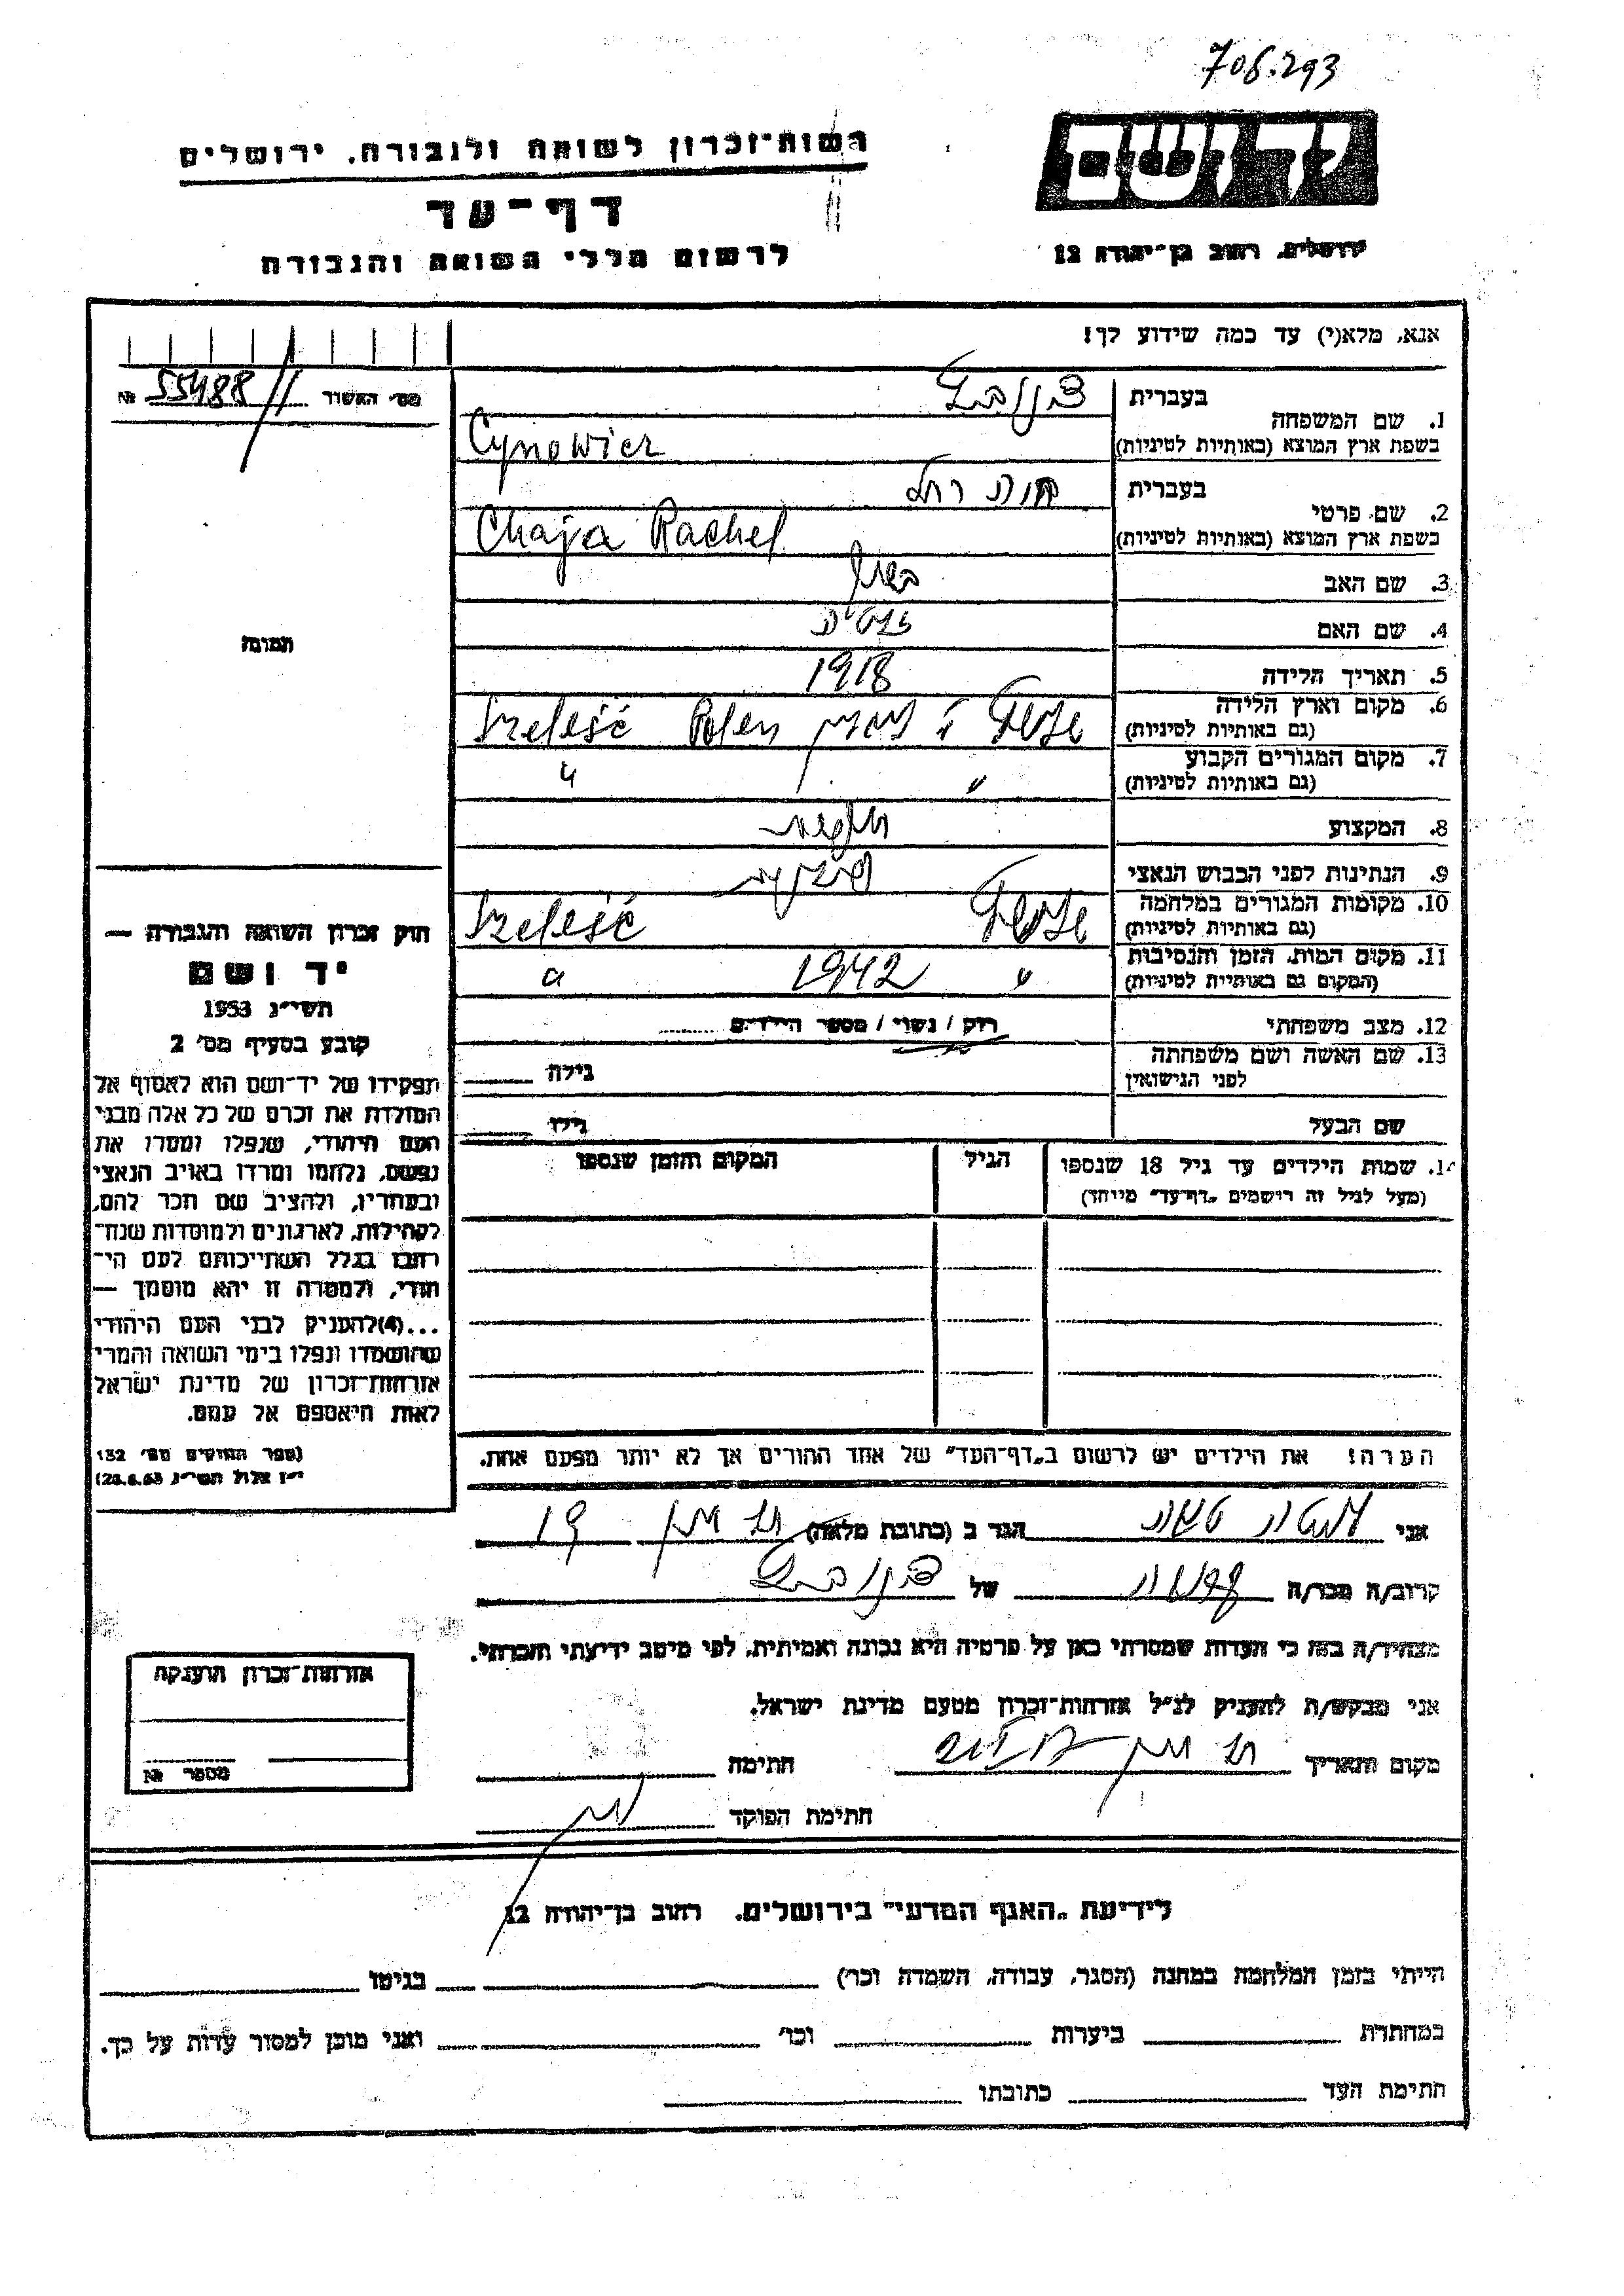 706.293
רשות־זכרון לשואה ולגבורה, ירושלים
יד ושם
דף־עד
ירושלים, רחוב בן־יהודה 12
לרשום חללי השואה והגבורה
אנא, מלא(י) עד כמה שידוע לך!
מס׳ האשור 55488 №
בעברית
1. שם המשפחה
בשפת ארץ המוצא (באותיות לטיניות) Cynowicz
בעברית חיה רחל
2. שם פרטי
בשפת ארץ המוצא (באותיות לטיניות) Chaja Rachel
3. שם האב
4. שם האם
תמונה
5. תאריך הלידה 1918
6. מקום וארץ הלידה Szeleść Polen
(גם באותיות לטיניות)
7. מקום המגורים הקבוע " "
(גם באותיות לטיניות)
8. המקצוע
9. הנתינות לפני הכבוש הנאצי
10. מקומות המגורים במלחמה Szeleść
(גם באותיות לטיניות)
11. מקום המות, הזמן והנסיבות " 1942 "
(המקום גם באותיות לטיניות)
12. מצב משפחתי רווק / נשוי / מספר הילדים
13. שם האשה ושם משפחתה
לפני הנישואין גילה
שם הבעל גילו
14. שמות הילדים עד גיל 18 שנספו הגיל המקום והזמן שנספו
(מעל לגיל זה רושמים „דף־עד״ מיוחד)
חוק זכרון השואה והגבורה —
יד ושם
תשי״ג 1953
קובע בסעיף מס׳ 2
תפקידו של יד־ושם הוא לאסוף אל
המולדת את זכרם של כל אלה מבני
העם היהודי, שנפלו ומסרו את
נפשם, נלחמו ומרדו באויב הנאצי
ובעוזריו, ולהציב שם וזכר להם,
לקהילות, לארגונים ולמוסדות שנח־
רבו בגלל השתייכותם לעם הי־
הודי, ולמטרה זו יהא מוסמך —
...(4) להעניק לבני העם היהודי
שהושמדו ונפלו בימי השואה והמרי
אזרחות־זכרון של מדינת ישראל
לאות היאספם אל עמם.
(ספר החוקים מס׳ 132
י״ז אלול תשי״ג 28.8.53)
הערה! את הילדים יש לרשום ב„דף־העד״ של אחד ההורים אך לא יותר מפעם אחת.
אני הגר ב (כתובת מלאה) 19
קרוב/ה מכר/ה של
מצהיר/ה בזה כי העדות שמסרתי כאן על פרטיה היא נכונה ואמיתית, לפי מיטב ידיעתי והכרתי.
אני מבקש/ת להעניק לנ״ל אזרחות־זכרון מטעם מדינת ישראל.
מקום ותאריך חתימה
חתימת הפוקד
אזרחות־זכרון הוענקה
מספר №
לידיעת „האגף המדעי״ בירושלים, רחוב בן־יהודה 12
הייתי בזמן המלחמה במחנה (הסגר, עבודה, השמדה וכו׳) בגיטו
במחתרת ביערות וכו׳ ואני מוכן למסור עדות על כך.
חתימת העד כתובתו